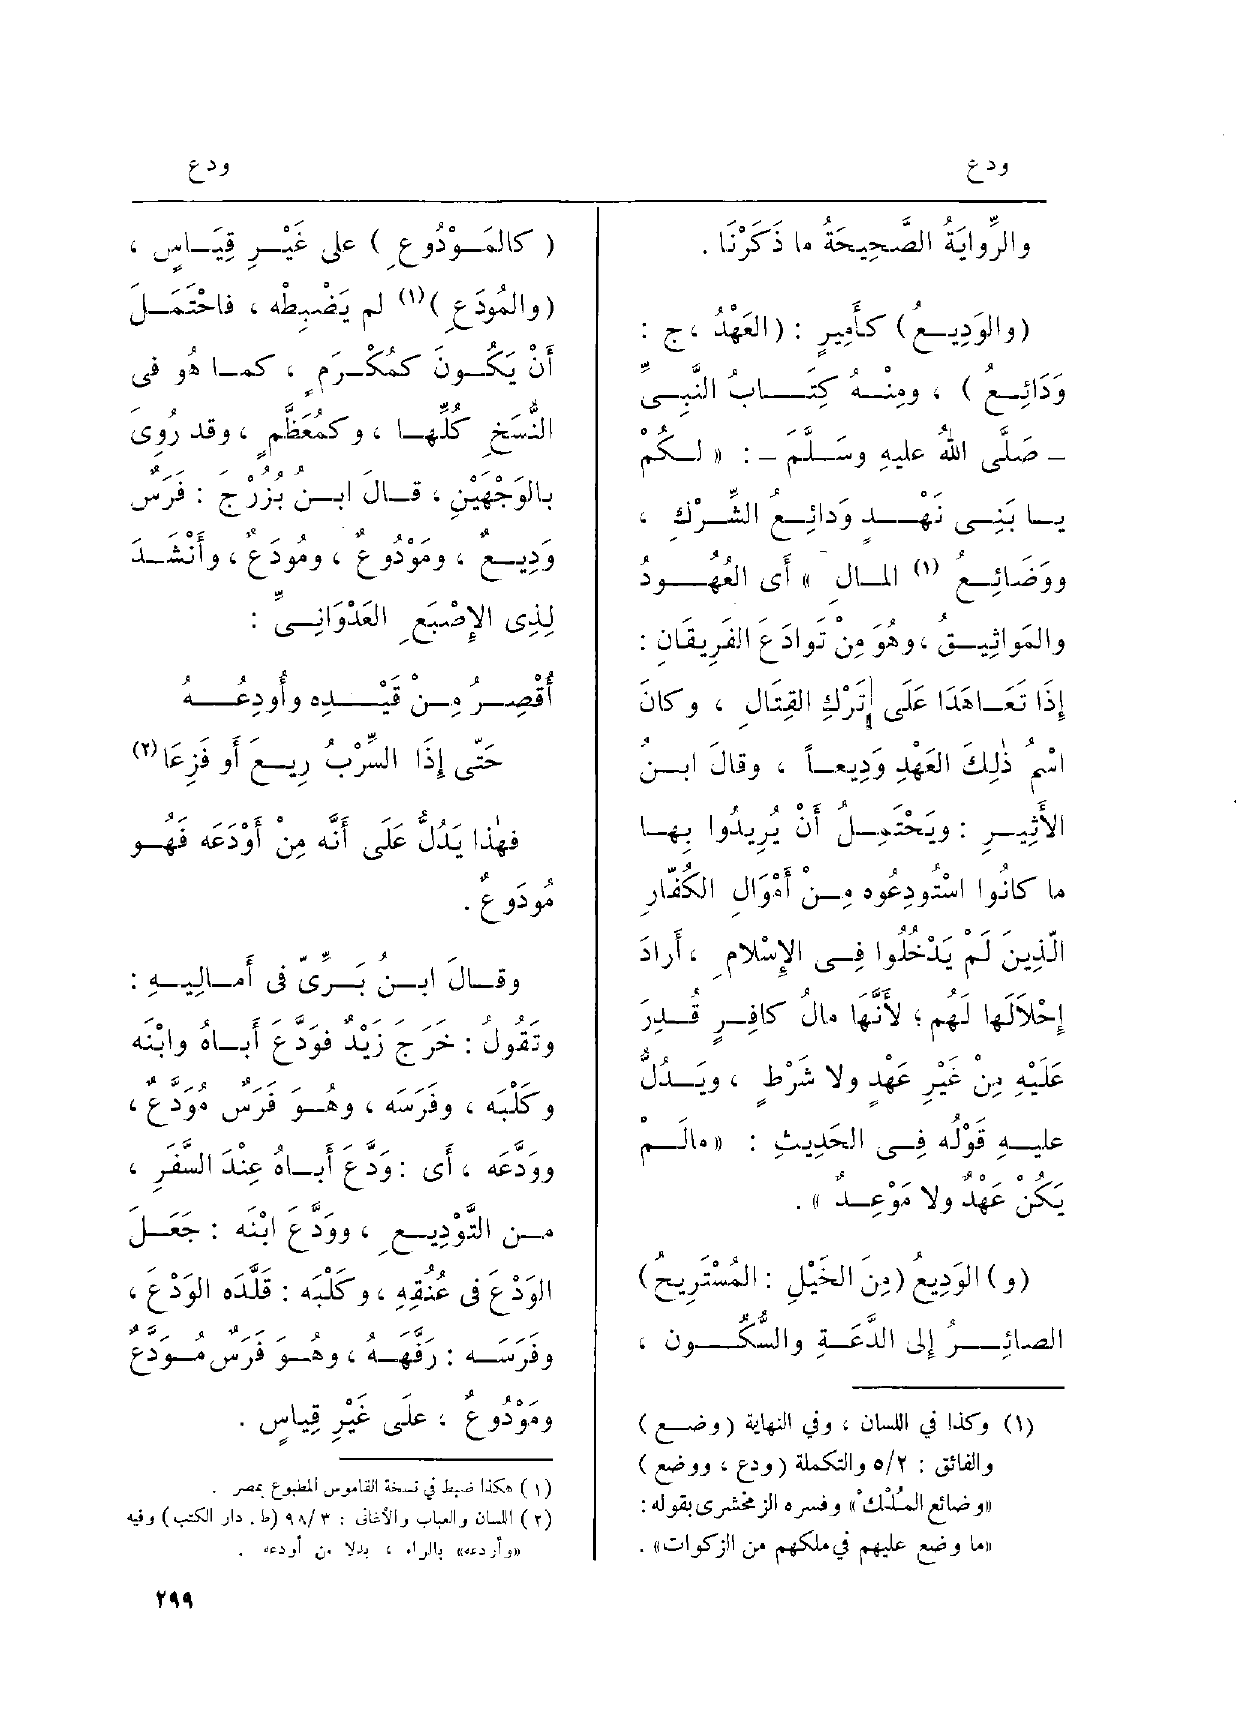 ودع
ودع
والرِّوايَةُ الصَّحِيحَةُ ما ذَكَرْنَا .
(والوَدِيــعُ) كأَمِيرٍ : (العَهْدُ ، ج :
وَدَائِــعُ ) ، ومِنْــهُ كِتَــابُ النَّبِــىِّ
– صَلَّى اللهُ عليهِ وسَــلَّم – : « لــكُمْ
يــا بَنِــى نَهْــدٍ وَدائِــعُ الشِّــرْكِ ،
ووَضَائِــعُ (١) المــالِ » أَى العُهُــودُ
والمَواثِيــقُ ، وهُوَ مِنْ تَوادَعَ الفَرِيقَانِ :
إِذَا تَعَــاهَدَا عَلَى تَرْكِ القِتَالِ ، وكانَ
اسْمُ ذٰلِكَ العَهْدِ وَدِيعــاً ، وقالَ ابــنُ
الأَثِيــرِ : ويَحْتَمِــلُ أَنْ يُرِيدُوا بِهــا
ما كانُوا اسْتُودِعُوه مِــنْ أَمْوَالِ الكُفّارِ
الَّذِينَ لَمْ يَدْخُلُوا فِــى الإِسْلامِ ، أَرادَ
إِحْلَالَها لَهُم ؛ لأَنَّهَا مالُ كافِــرٍ قُــدِرَ
عَلَيْهِ مِنْ غَيْرِ عَهْدٍ ولا شَرْطٍ ، ويَــدُلُّ
عليــهِ قَوْلُه فِــى الحَدِيثِ : « مالَــمْ
يَكُنْ عَهْدٌ ولا مَوْعِــدٌ » .
(و) الوَدِيعُ (مِنَ الخَيْلِ : المُسْتَرِيحُ)
الصائِــرُ إِلى الدَّعَــةِ والسُّكُــون ،
(١) وكذا في اللسان ، وفي النهاية (وضــع)
والفائق : ٥/٢ والتكملة (ودع ، ووضع)
«وضائع المُلْك» وفسره الزمخشرى بقوله :
«ما وضع عليهم في ملكهم من الزكوات» .
( كالمَــوْدُوعِ ) على غَيْــرِ قِيَــاسٍ ،
(والمُودَعِ )(١) لم يَضْبِطْه ، فاحْتَمَــلَ
أَنْ يَكُــونَ كمُكْــرَمٍ ، كمــا هُو فى
النُّسَخِ كُلِّهــا ، وكمُعَظَّمٍ ، وقد رُوِىَ
بالوَجْهَيْنِ ، قــال ابــن بُزُرْجَ : فَرَسٌ
وَدِيــعٌ ، ومَوْدُوعٌ ، ومُودَعٌ ، وأَنْشَــدَ
لِذِى الإِصْبَعِ العَدْوَانِــىِّ :
أُقْصِــرُ مِــنْ قَيْــدِه وأُودِعُــهُ
حَتّى إِذَا السِّرْبُ رِيــعَ أَو فَزِعَا(٢)
فهٰذا يَدُلُّ عَلَى أَنَّه مِنْ أَوْدَعَه فَهُــو
مُودَوعٌ .
وقــالَ ابــن بَــرِّىّ فى أَمــالِيــهِ :
وتَقُولُ : خَرَجَ زَيْدٌ فوَدَّعَ أَبــاهُ وابْنَه
وكَلْبَه ، وفَرَسَه ، وهُــو فَرَسٌ مُوَدَّعٌ ،
وودَّعَه ، أَى : وَدَّعَ أَبــاهُ عِنْدَ السَّفَرِ ،
مــن التَّوْدِيــعِ ، ووَدَّعَ ابْنَه : جَعَــلَ
الوَدْعَ فى عُنُقِهِ ، وكَلْبَه : قَلَّدَه الوَدْعَ ،
وفَرَسَــه : رَفَّهَــهُ ، وهُــوَ فَرَسٌ مُــوَدَّعٌ
ومَوْدُوعٌ ، علَى غَيْرِ قِياسٍ .
(١) هكذا ضبط في نسخة القاموس المطبوع بمصر .
(٢) اللسان والعباب والأغانى : ٩٨/٣ (ط. دار الكتب) وفيه
«وأردعه» بالراء ، بدلا من أودعه .
٢٩٩